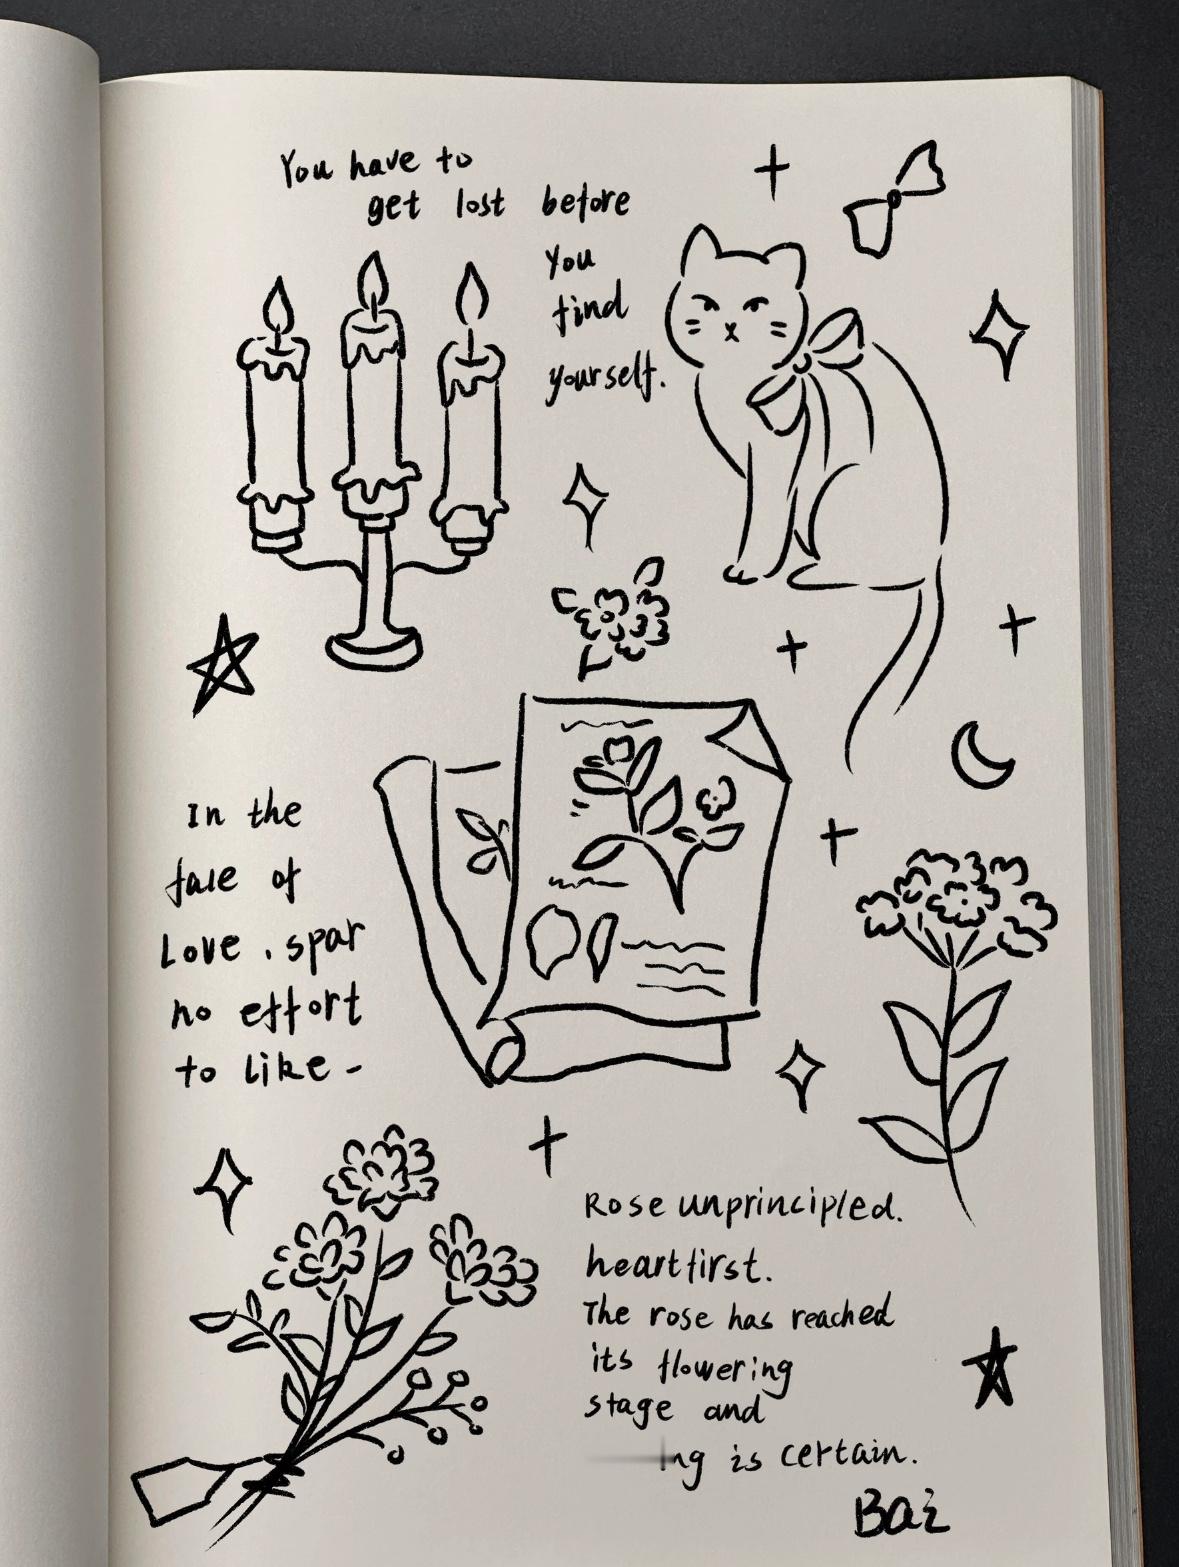 You have to
get lost before
you
find
yourself.
In the
fale of
Love, spar
no effort
to like-
Rose unprincipled.
heartfirst.
The rose has reached
its flowering
stage and
is certain.
Bai